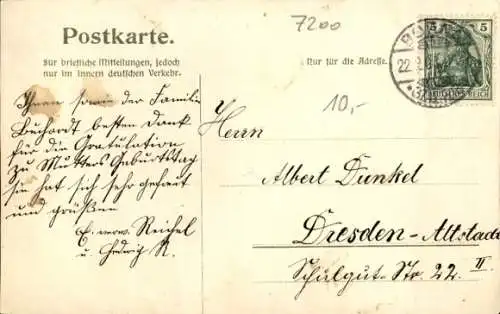 7200
Postkarte.
Für briefliche Mitteilungen, jedoch
nur im Innern deutschen Verkehr.
Nur für die Adresse.
5 5
REICH
22
10,-
Ihnen sowie der Familie
Buchardt besten Dank
für die Gratulation
zu Mutters Geburtstag
sie hat sich sehr gefreut
und grüßen
Reichel
u. Hedwig R.
Herrn
Albert Dunkel
Dresden-Altstadt
Schulgut-Str. 22 II